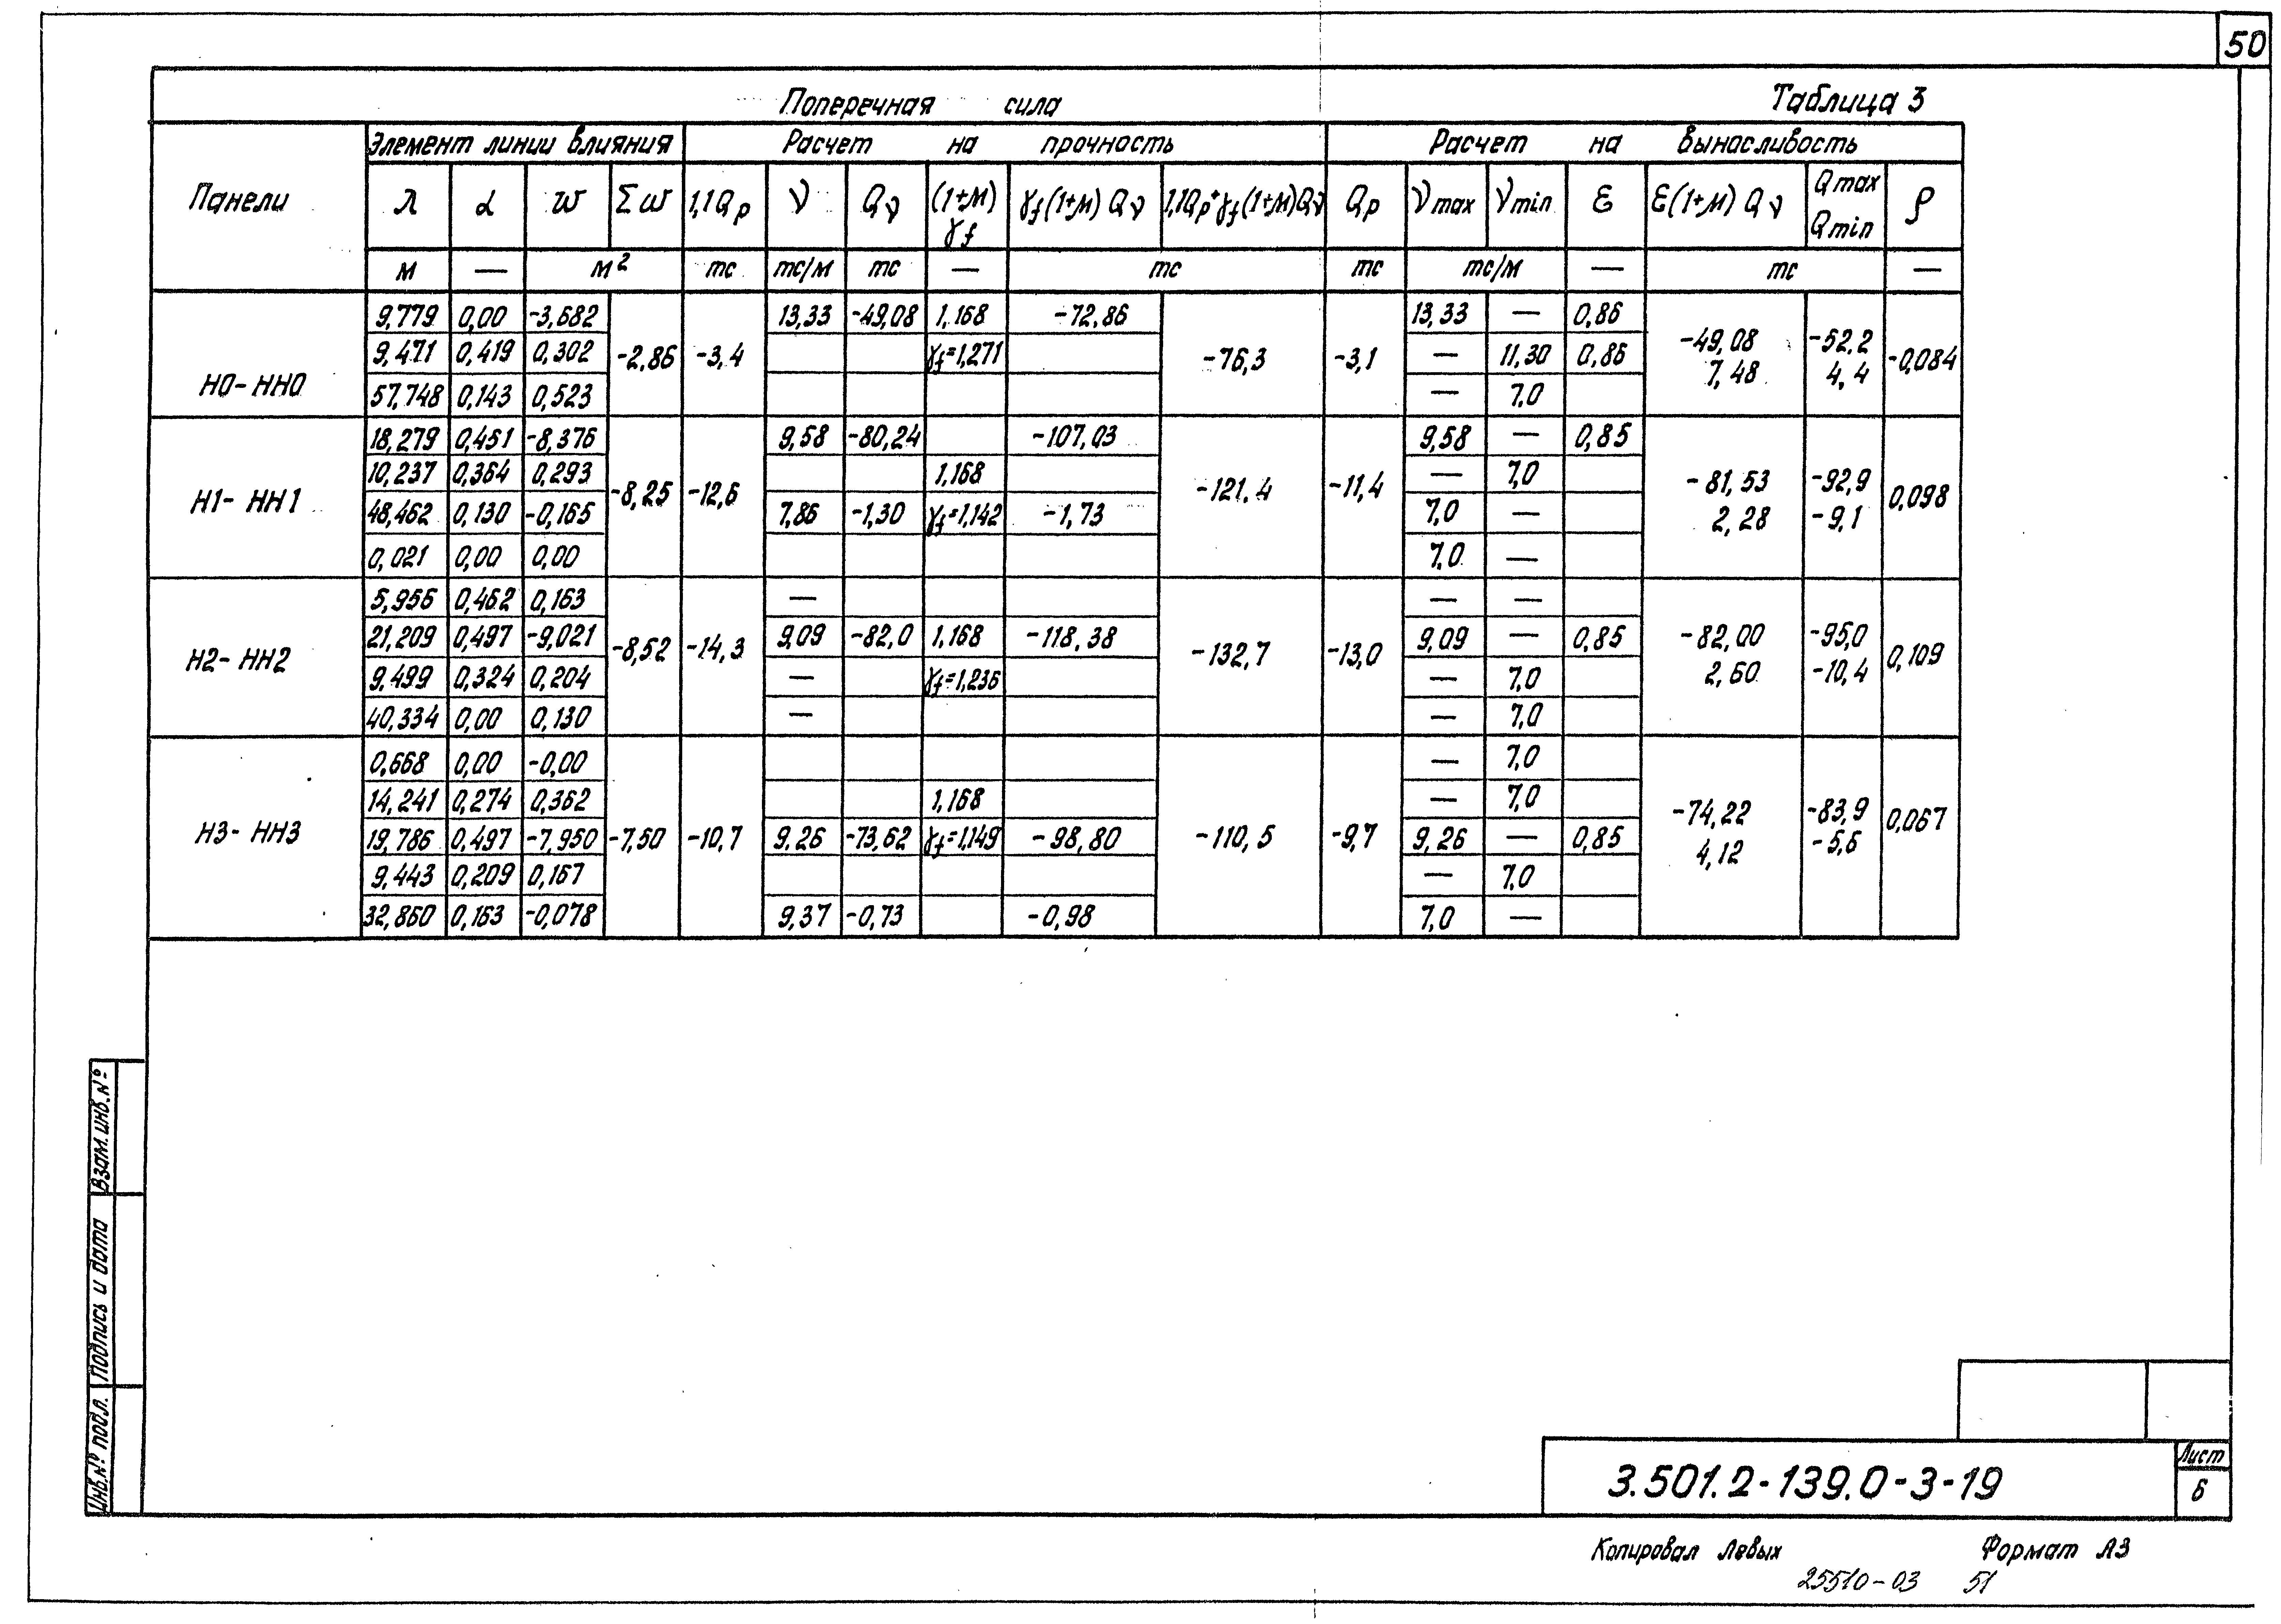 50
Поперечная сила Таблица 3
Панели Элемент линии влияния Расчет на прочность Расчет на выносливость
λ α w Σw 1,1Qp ν Qν (1+М) γf γf(1+М) Qν 1,1Qp+γf(1+М)Qν Qp νmax νmin ε ε(1+М) Qν Qmax Qmin ρ
м — м² тс тс/м тс — тс тс тс/м — тс —
Н0-НН0
9,779 0,00 -3,682 13,33 -49,08 1,168 -72,86 13,33 — 0,86
9,471 0,419 0,302 -2,86 -3,4 γf=1,271 -76,3 -3,1 — 11,30 0,86 -49,08 7,48 -52,2 4,4 -0,084
57,748 0,143 0,523 — 7,0
Н1-НН1
18,279 0,451 -8,376 9,58 -80,24 -107,03 9,58 — 0,85
10,237 0,364 0,293 -8,25 -12,6 1,168 -121,4 -11,4 — 7,0 -81,53 2,28 -92,9 -9,1 0,098
48,462 0,130 -0,165 7,86 -1,30 γf=1,142 -1,73 7,0 —
0,021 0,00 0,00 7,0 —
Н2-НН2
5,956 0,462 0,163 — — —
21,209 0,497 -9,021 -8,52 -14,3 9,09 -82,0 1,168 -118,38 -132,7 -13,0 9,09 — 0,85 -82,00 2,60 -95,0 -10,4 0,109
9,499 0,324 0,204 — γf=1,236 — 7,0
40,334 0,00 0,130 — — 7,0
Н3-НН3
0,668 0,00 -0,00 — 7,0
14,241 0,274 0,362 1,168 — 7,0
19,786 0,497 -7,950 -7,50 -10,7 9,26 -73,62 γf=1,149 -98,80 -110,5 -9,7 9,26 — 0,85 -74,22 4,12 -83,9 -5,6 0,067
9,443 0,209 0,167 — 7,0
32,860 0,163 -0,078 9,37 -0,73 -0,98 7,0 —
Взам.инв.№
Подпись и дата
Инв.№ подл.
3.501.2-139.0-3-19
Лист
6
Копировал Левых Формат А3
25510-03 51